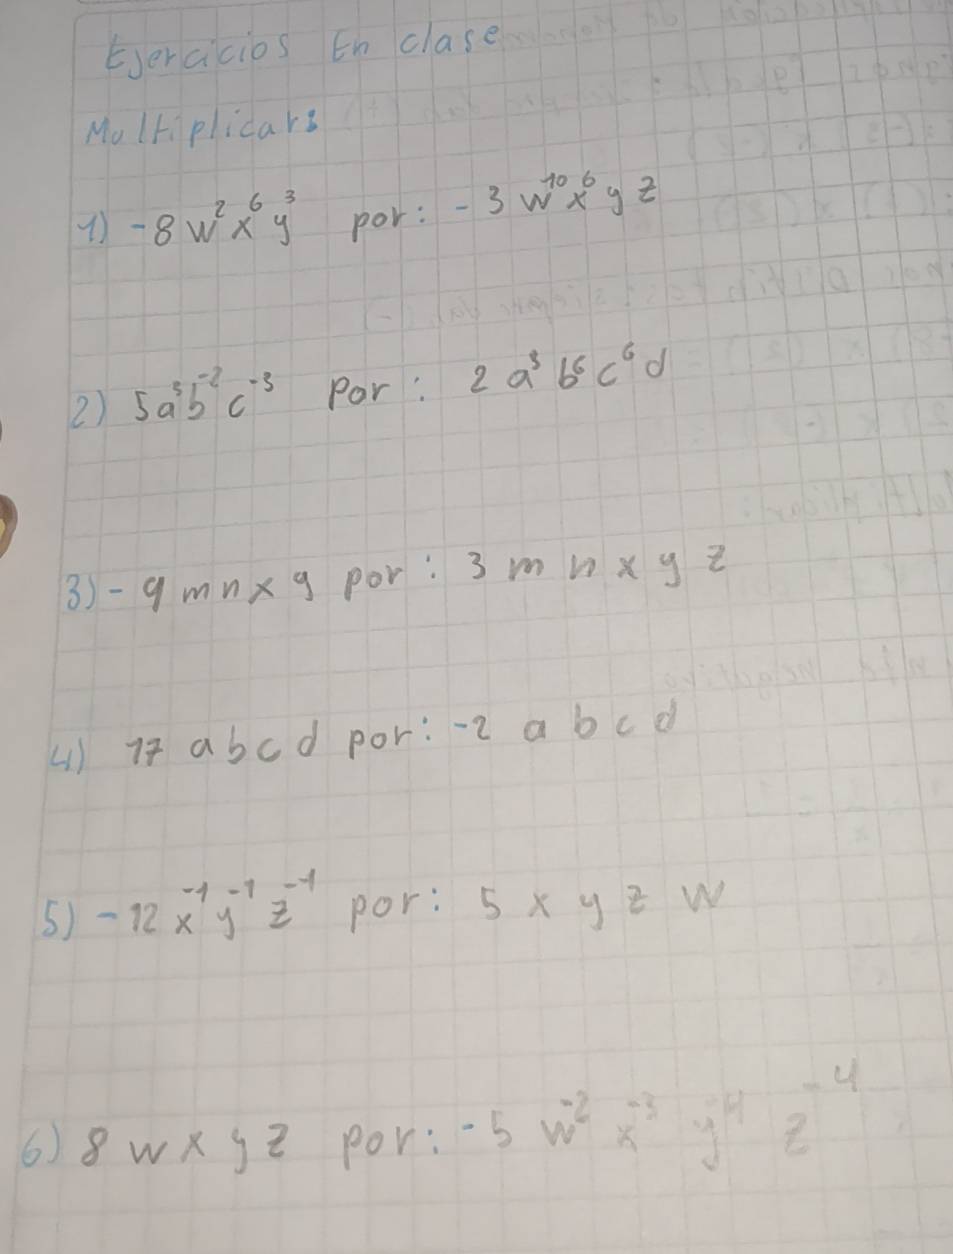 Ejercicios En clase
Multiplicar:
1) -8w²x⁶y³ por: -3w¹⁰x⁶yz
2) 5a³b⁻²c⁻³ Por: 2a³b⁶c⁶d
3) -9mnxy por: 3mnxyz
4) 17abcd por: -2abcd
5) -12x⁻¹y⁻¹z⁻¹ por: 5xyzw
6) 8wxyz por: -5w⁻²x⁻³y⁻⁴z⁻⁴